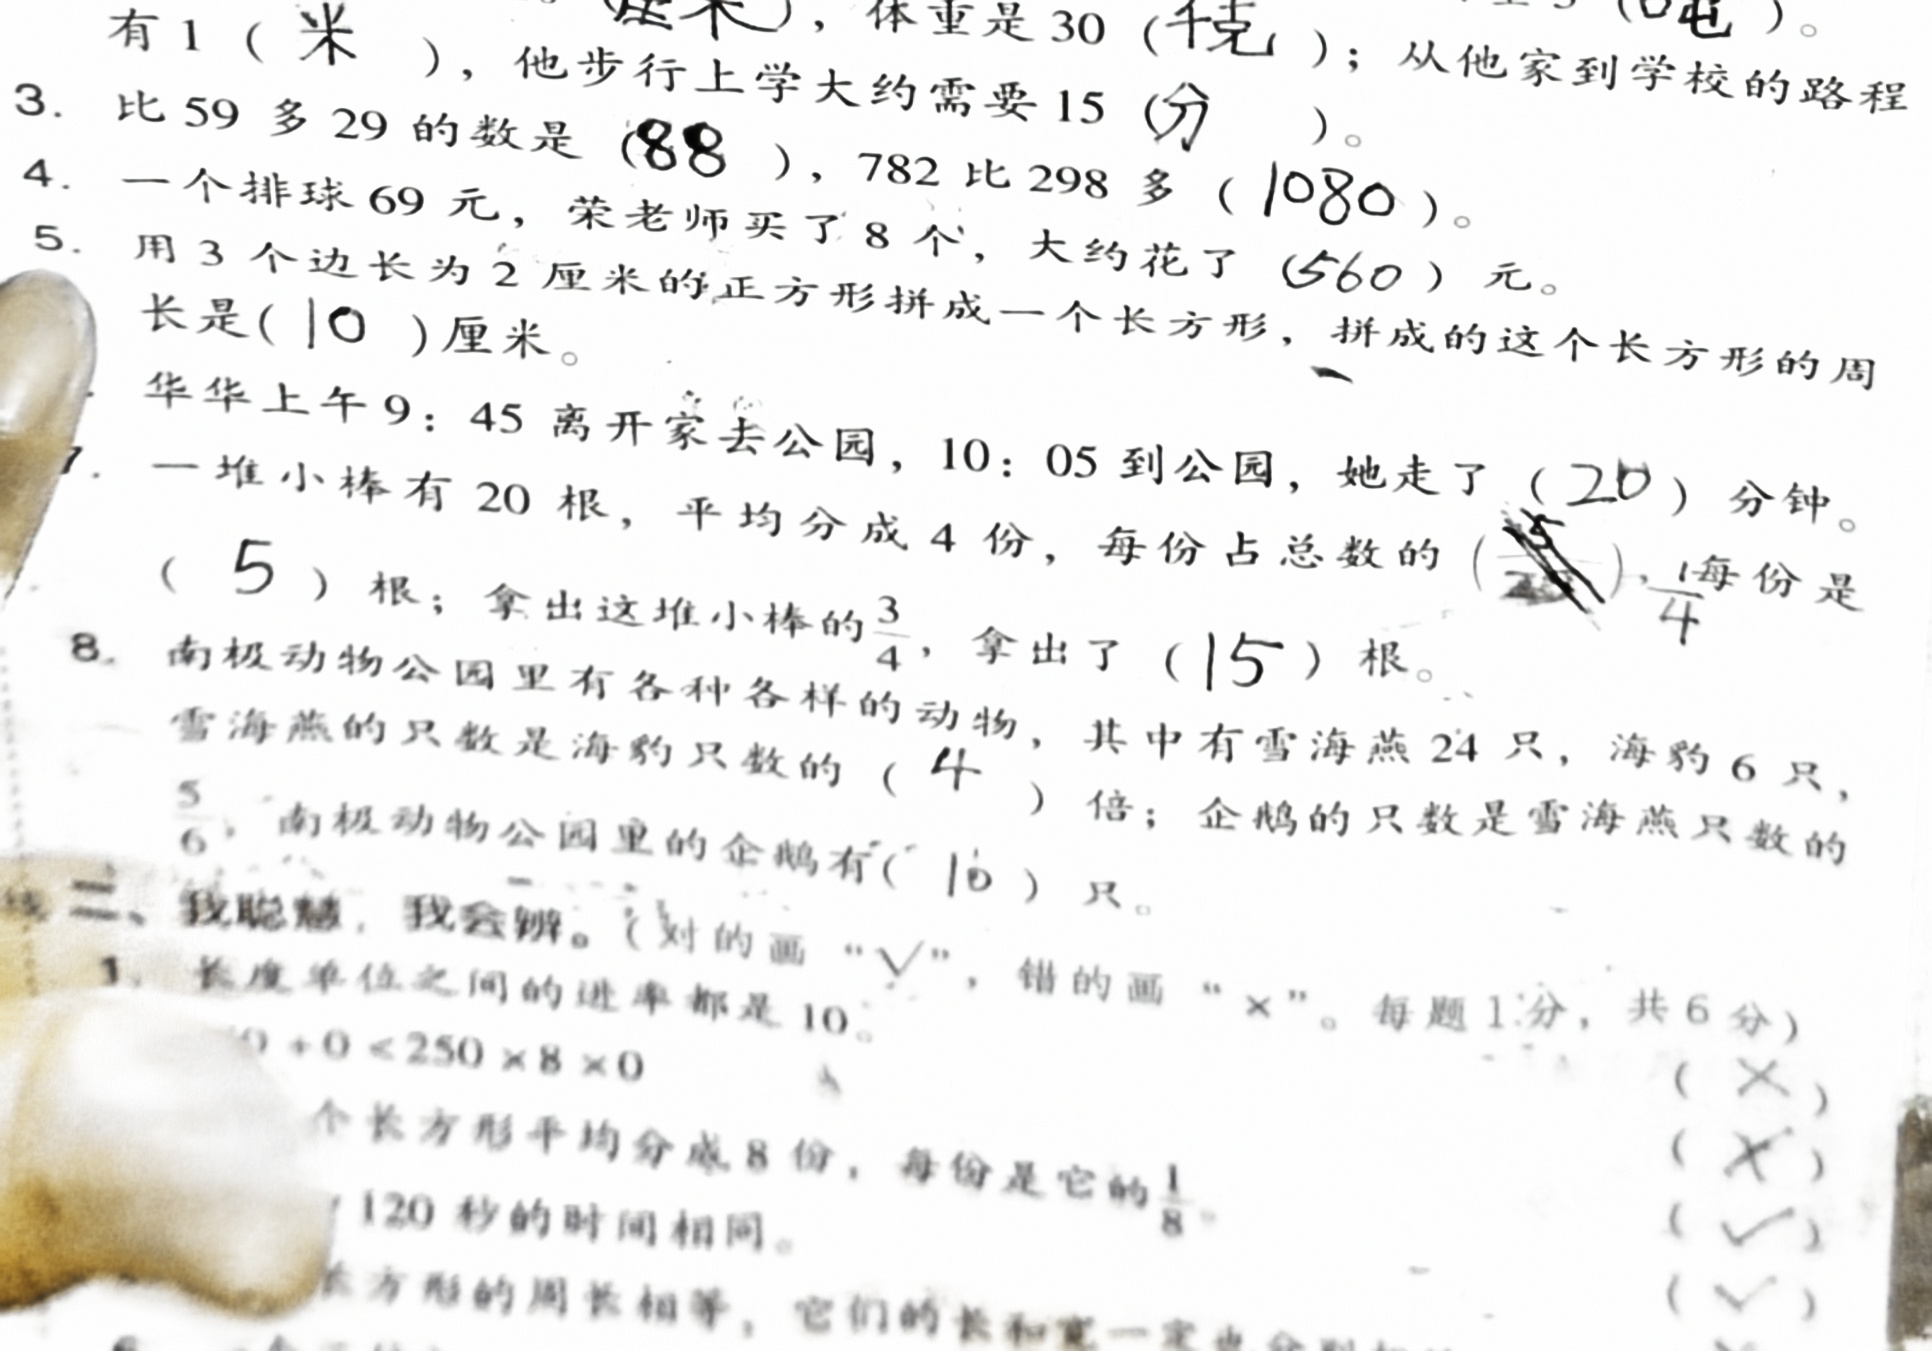 厘米），体重是 30（千克）；从他家到学校的路程
有 1（米），他步行上学大约需要 15（分）。
3. 比 59 多 29 的数是（88），782 比 298 多（1080）。
4. 一个排球 69 元，荣老师买了 8 个，大约花了（560）元。
5. 用 3 个边长为 2 厘米的正方形拼成一个长方形，拼成的这个长方形的周
长是（10）厘米。
华华上午 9：45 离开家去公园，10：05 到公园，她走了（20）分钟。
7. 一堆小棒有 20 根，平均分成 4 份，每份占总数的（ ），1/4 每份是
（5）根；拿出这堆小棒的 3/4，拿出了（15）根。
8. 南极动物公园里有各种各样的动物，其中有雪海燕 24 只，海豹 6 只，
雪海燕的只数是海豹只数的（4）倍；企鹅的只数是雪海燕只数的
5/6，南极动物公园里的企鹅有（10）只。
二、我聪慧，我会辨。（对的画“√”，错的画“×”。每题 1 分，共 6 分）
1. 长度单位之间的进率都是 10。（×）
0 + 0 < 250 × 8 × 0（×）
个长方形平均分成 8 份，每份是它的 1/8。（√）
120 秒的时间相同。（√）
长方形的周长相等，它们的长和宽一定也分别